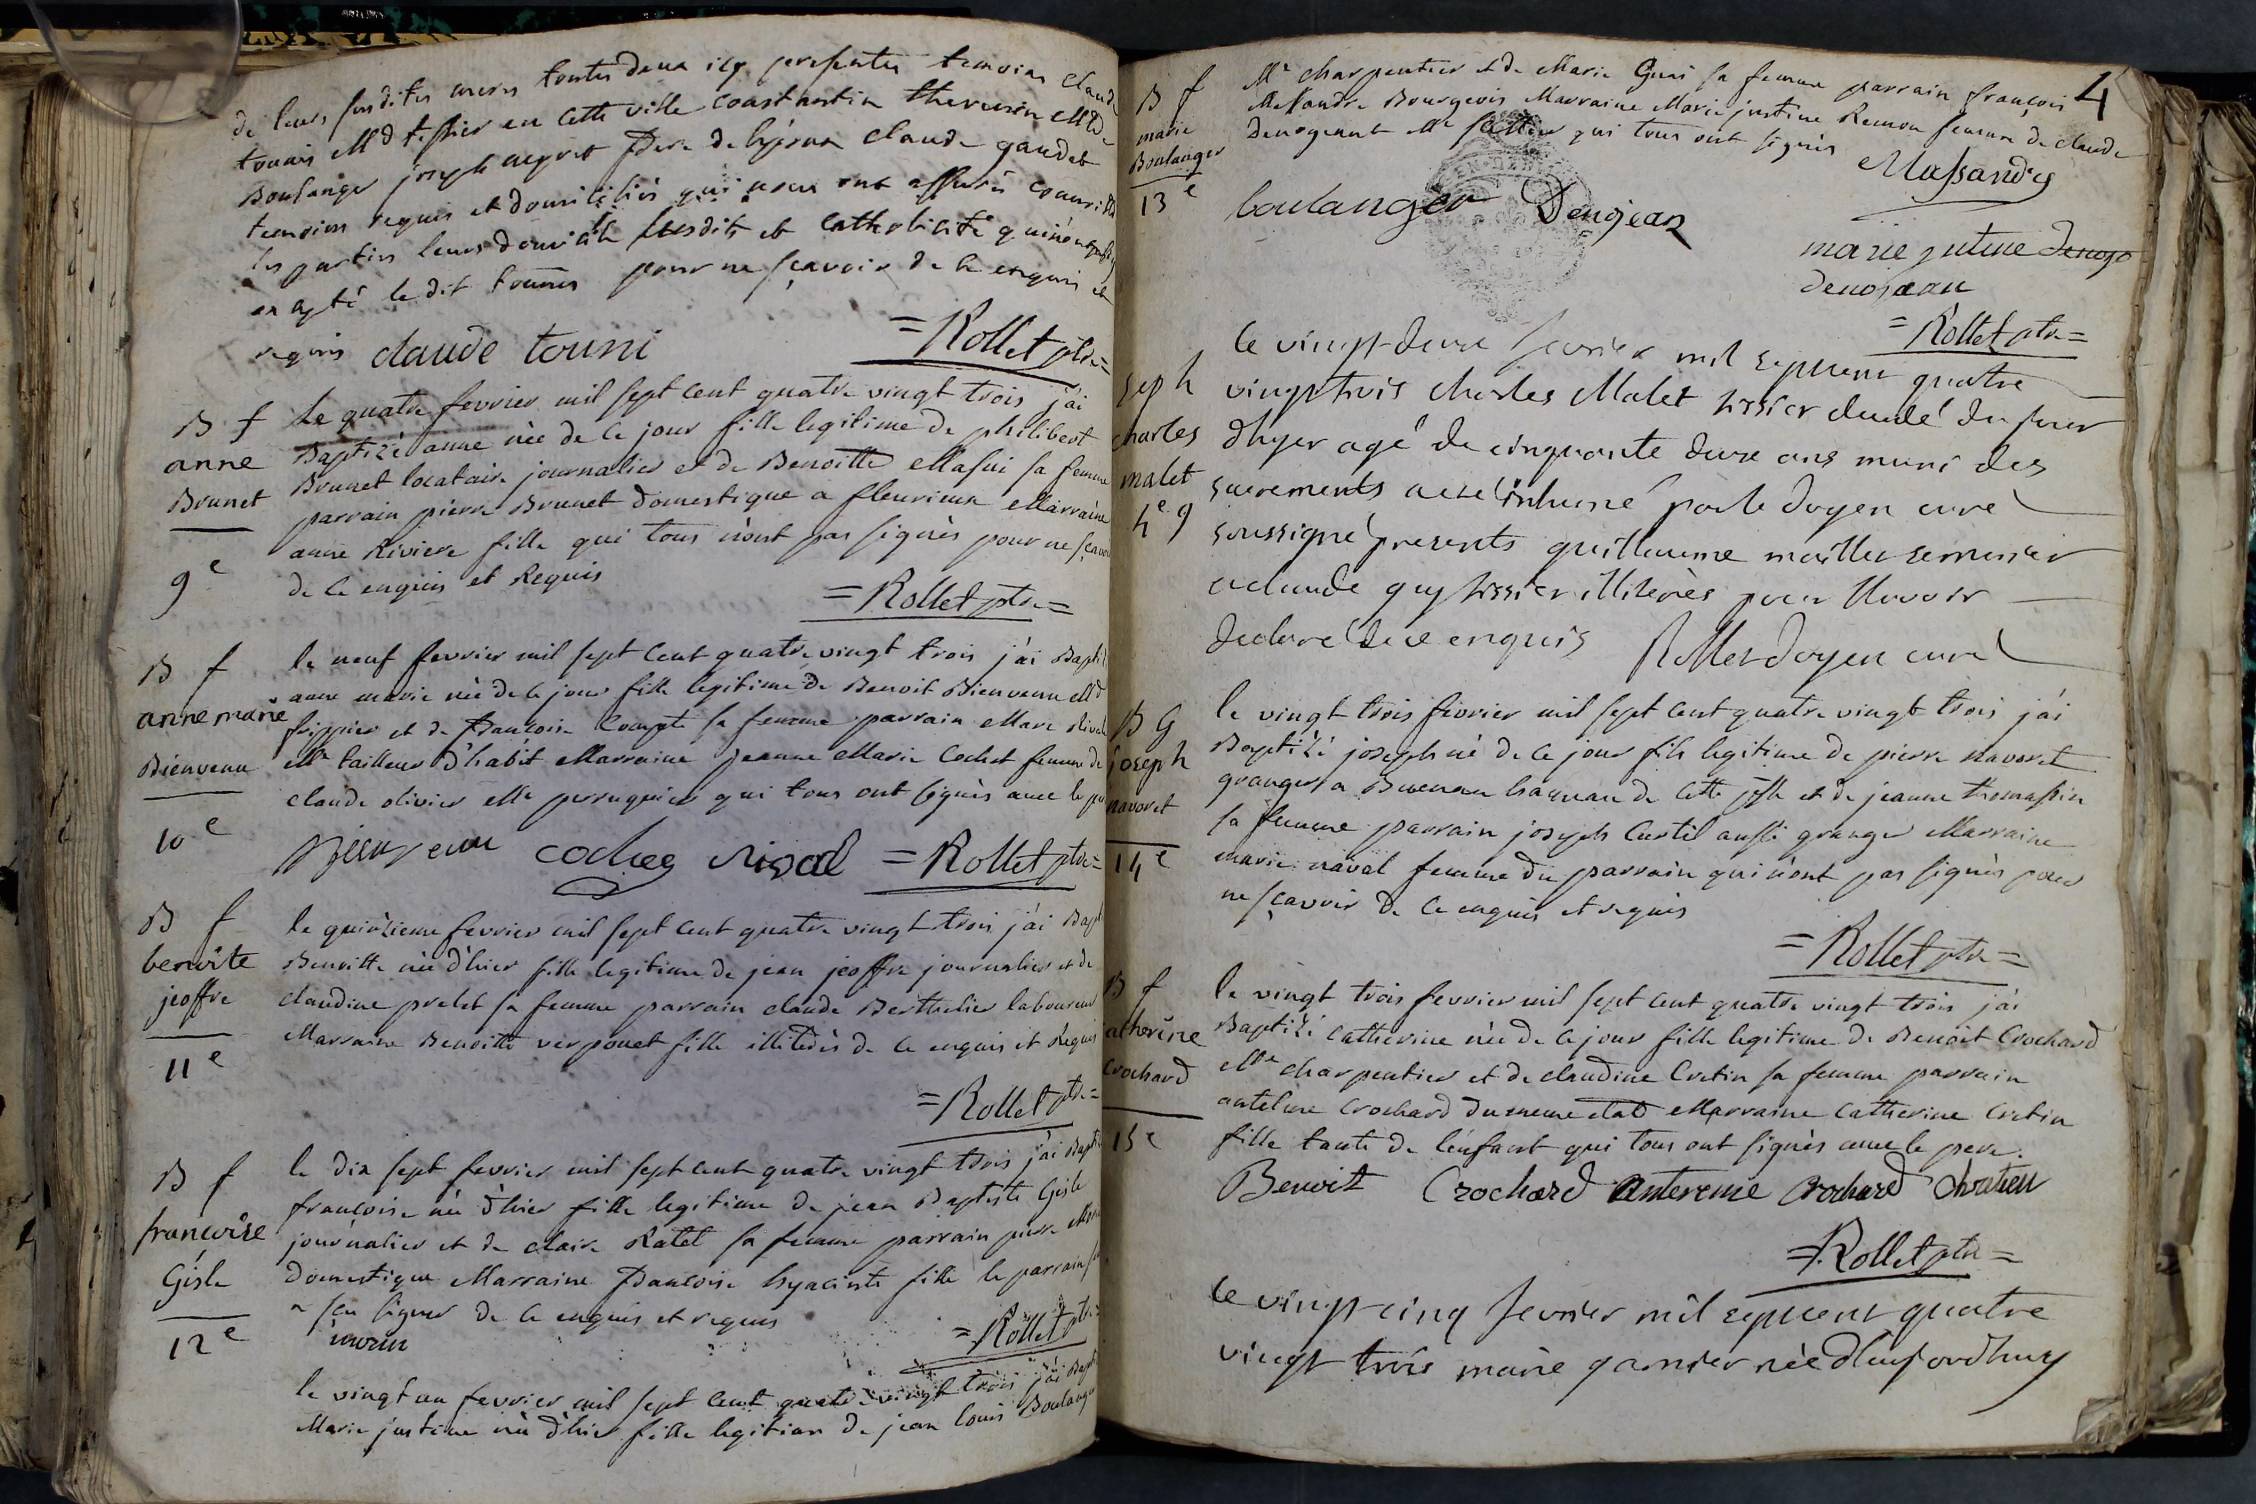 de leurs susdites meres toutes deux icy presentes temoins claude
tounis Md tessier en cette ville constantin thevenin Md
Boulanger joseph negret Pere de l'epoux claude gaudet
temoins requis et domiciliés qui nous ont assurés connoitre
les parties leurs domicile susdits et catholicité qui n'ont signés
excepté le dit tounis pour ne sçavoir de ce enquis et
requis claude touni
=Rollet ptre=
B f
anne
Brunet
9e
Le quatre fevrier mil sept cent quatre vingt trois j'ai
Baptizé anne née de ce jour fille legitime de philibert
Brunet locataire journalier et de Benoitte Masui sa femme
parrain pierre Brunet domestique a fleurieux Marraine
anne Riviere fille qui tous n'ont pas signés pour ne sçavoir
de ce enquis et Requis
=Rollet ptre=
B f
anne marie
Bienvenu
10e
le neuf fevrier mil sept cent quatre vingt trois j'ai Bapti
anne marie née de ce jour fille legitime de Benoit Bienvenu Md
frippier et de francoise Compte sa femme parrain Marc Rival
Me tailleur d'habit Marraine Jeanne Marie Cochet femme de
claude olivier Me perruquier qui tous ont signés avec le pe
Bienvenu cochet Rival =Rollet ptre=
B f
benoîte
jeoffre
11e
le quinzieme fevrier mil sept cent quatre vingt trois j'ai Bapt
Benoitte née d'hier fille legitime de jean jeoffre journalier et de
claudine prelet sa femme parrain claude Berthelier laboureur
Marraine Benoitte verpouet fille illiterés de ce enquis et Requis
=Rollet ptre=
B f
francoise
Gisle
12e
le dix sept fevrier mil sept cent quatre vingt trois j'ai Bapti
francoise née d'hier fille legitime de jean Baptiste Gisle
journalier et de claire Ratet sa femme parrain pierre
domestique Marraine francoise hyacinte fille le parrain
a sçu signer de ce enquis et requis
morin
=Rollet ptre=
le vingt un fevrier mil sept cent quatre vingt trois j'ai Bapti
Marie justine née d'hier fille legitime de jean louis Boulanger
4
B f
marie
Boulanger
13e
Me charpentier et de Marie Guri sa femme parrain françois
Massandre Bourgeois Marraine Marie justine Remon femme de claude
denogeant Me qui tous ont signés
Massandry
boulanger Denojean
marie jutine denogo
denojean
=Rollet ptre=
seph
charles
malet
4e g
le vingt-deux fevrier mil septcent quatre
vingt trois charles Malet tissier decedé du jour
d'hyer agé de cinquante deux ans muni des
sacrements a eté inhumé par le doyen curé
soussigné presents guillaume maillet semensier
claude guy tissier illiterés pour l'avoir
declaré de ce enquis Rollet doyen curé
B G
joseph
navoret
14e
le vingt trois fevrier mil sept cent quatre vingt trois j'ai
Baptizé joseph né de ce jour fils legitime de pierre navoret
granger a hameau de cette psse et de jeanne thomassin
sa femme parrain joseph Curtil aussi granger Marraine
marie naval femme du parrain qui n'ont pas signés pour
ne sçavoir de ce enquis et requis
=Rollet ptre=
B f
atherine
Crochard
15e
le vingt trois fevrier mil sept cent quatre vingt trois j'ai
Baptizé catherine née de ce jour fille legitime de Benoit Crochard
Me charpentier et de claudine Cretin sa femme parrain
antelme Crochard du meme etat Marraine Catherine Cretin
fille tante de l'enfant qui tous ont signés avec le pere.
Benoit Crochard anterme crochard chratien
=Rollet ptre=
le vingt-cinq fevrier mil septcent quatre
vingt trois marie garnier née d'aujourdhuy